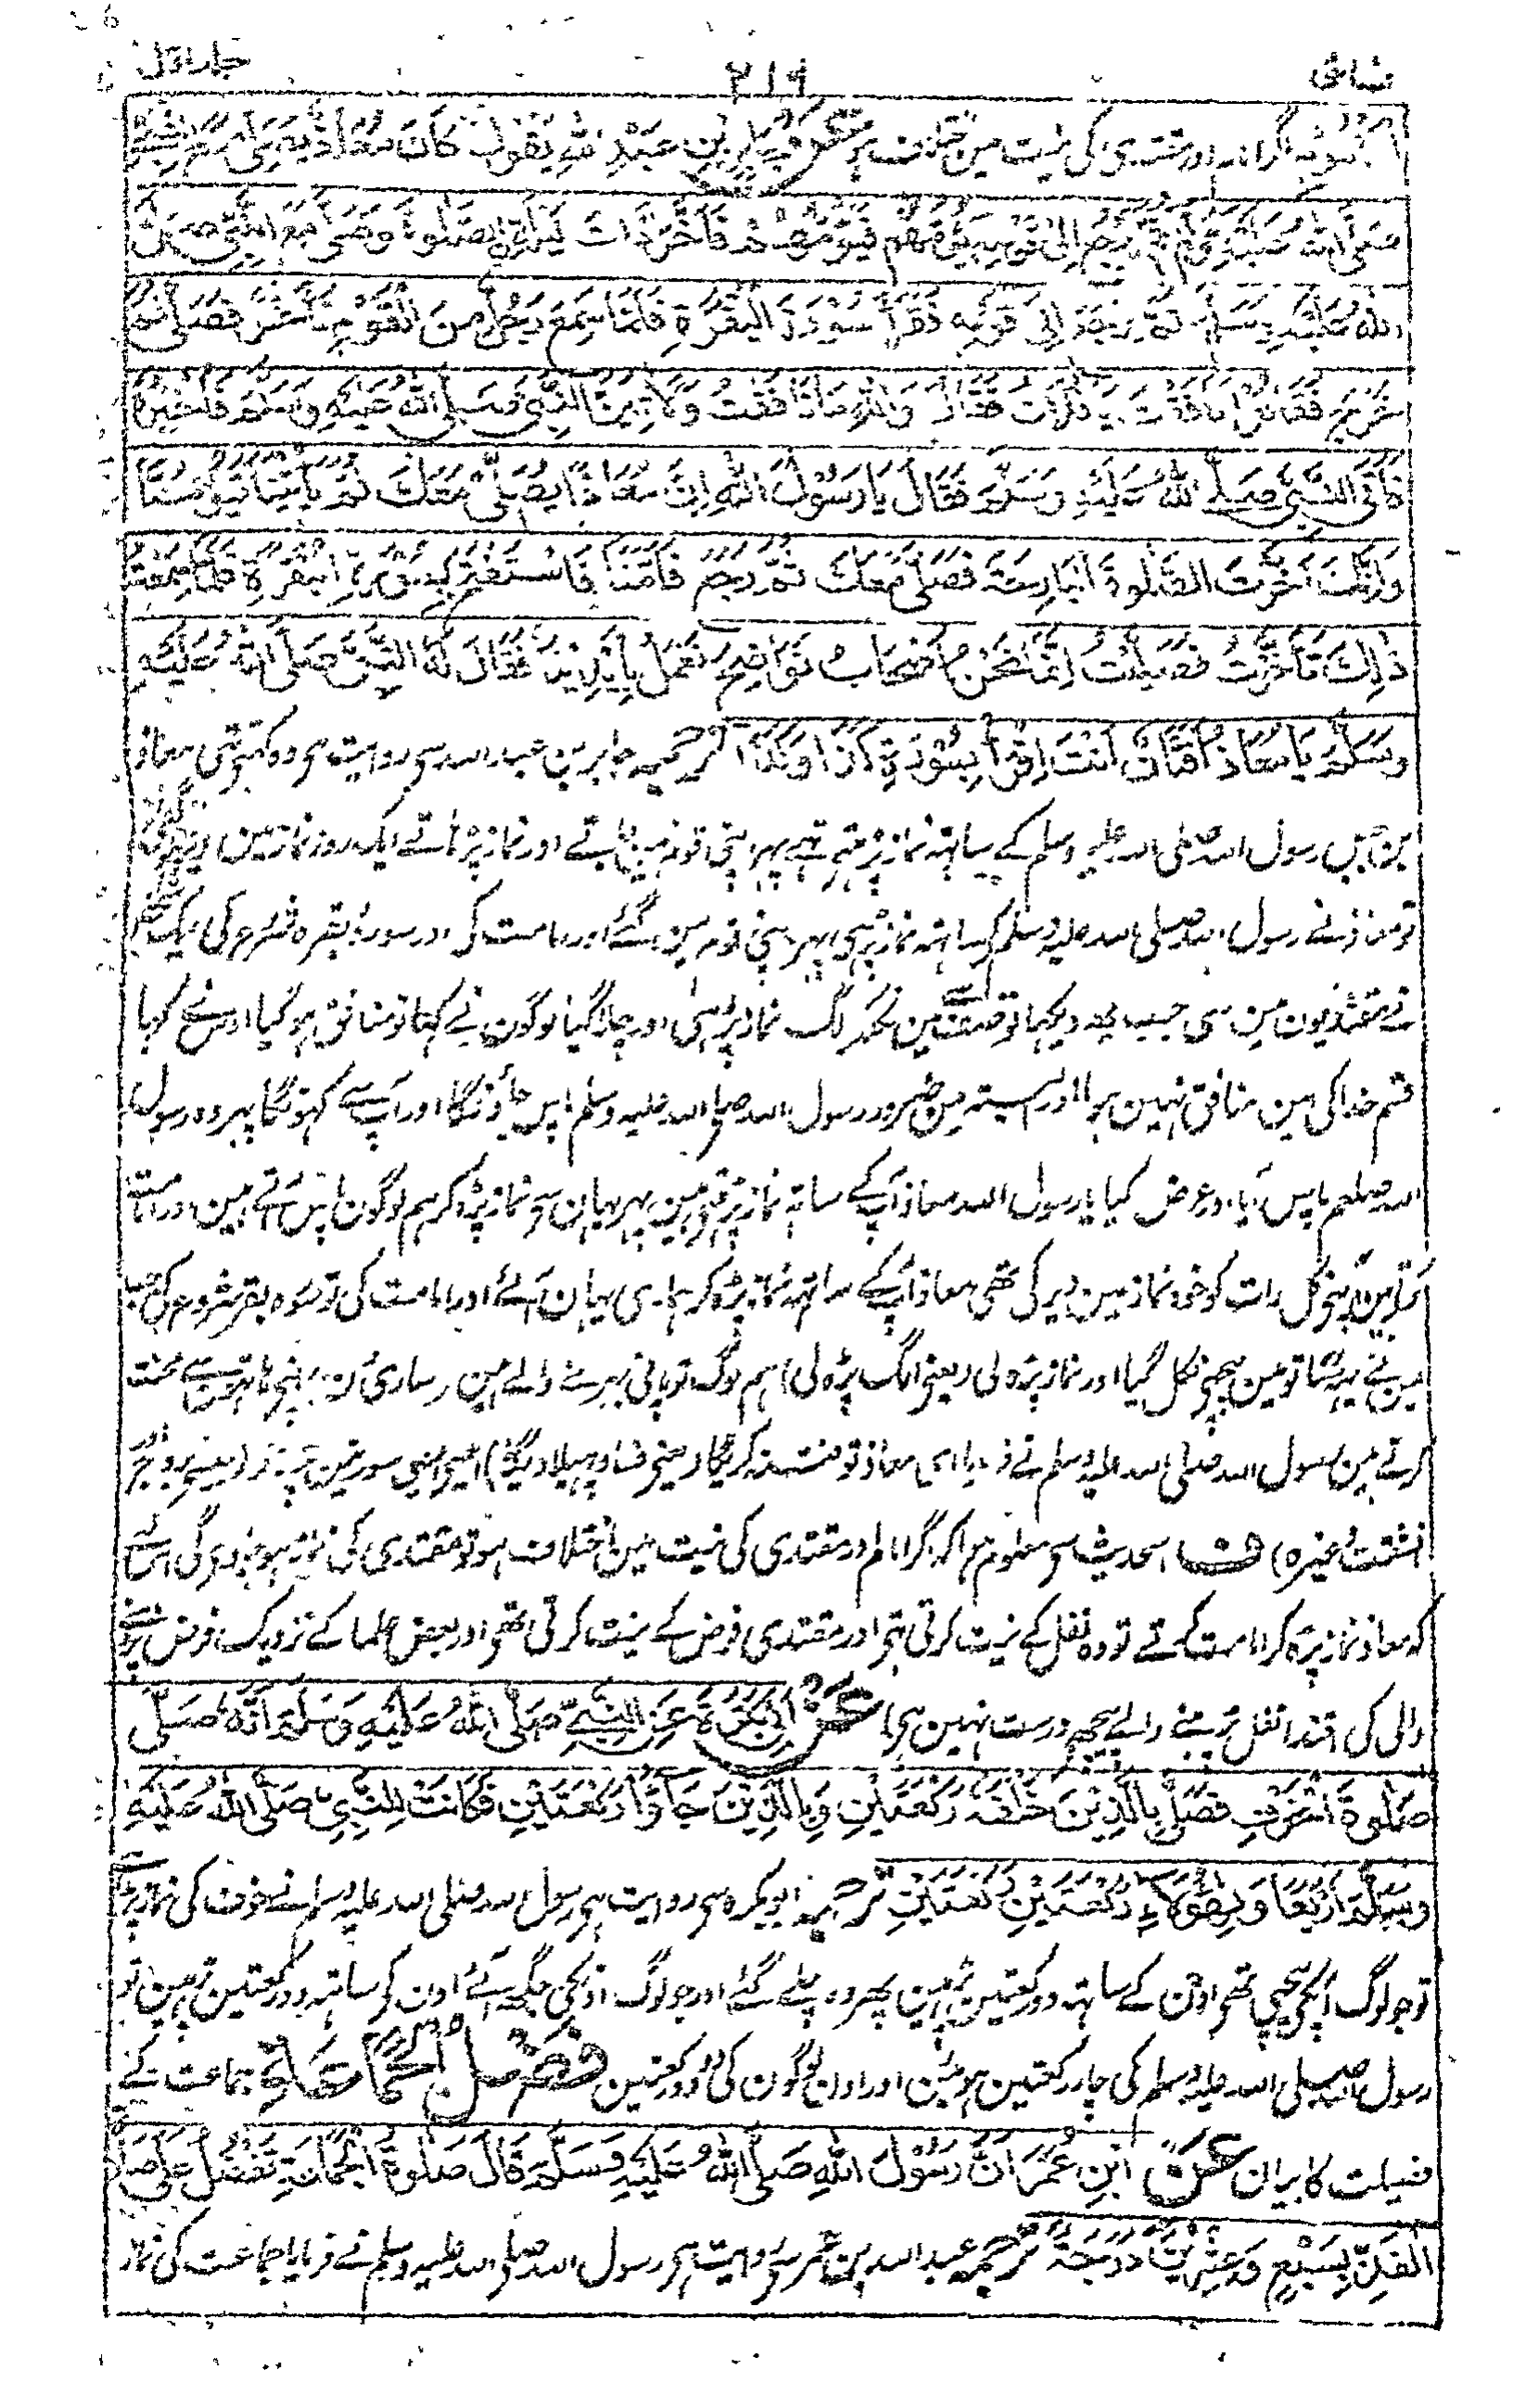 نسائی ۲۱۹ جلد اول
اگر امام اور مقتدی کی نیت مین اختلاف ہو عَنْ جَابِرِ بْنِ عَبْدِ اللهِ يَقُولُ كَانَ مُعَاذٌ يُصَلِّي مَعَ النَّبِيِّ
صَلَّى اللهُ عَلَيْهِ وَسَلَّمَ ثُمَّ يَرْجِعُ اِلٰى قَوْمِهِ يَؤُمُّهُمْ فَاَخَّرَ ذَاتَ لَيْلَةٍ الصَّلٰوةَ وَصَلّٰى مَعَ النَّبِيِّ صَلَّى
اللهُ عَلَيْهِ وَسَلَّمَ ثُمَّ رَجَعَ اِلٰى قَوْمِهِ فَقَرَأَ سُوْرَةَ الْبَقَرَةِ فَلَمَّا سَمِعَ رَجُلٌ مِنَ الْقَوْمِ تَاَخَّرَ فَصَلّٰى ثُمَّ
خَرَجَ فَقَالُوْا نَافَقْتَ يَا فُلَانُ فَقَالَ وَاللهِ مَا نَافَقْتُ وَلَاٰتِيَنَّ النَّبِيَّ صَلَّى اللهُ عَلَيْهِ وَسَلَّمَ فَاُخْبِرُهُ
فَاَتَى النَّبِيَّ صَلَّى اللهُ عَلَيْهِ وَسَلَّمَ فَقَالَ يَا رَسُوْلَ اللهِ اِنَّ مُعَاذًا يُصَلِّيْ مَعَكَ ثُمَّ يَاْتِيْنَا فَيَؤُمُّنَا
وَاِنَّكَ اَخَّرْتَ الصَّلٰوةَ الْبَارِحَةَ فَصَلّٰى مَعَكَ ثُمَّ رَجَعَ فَاَمَّنَا فَاسْتَفْتَحَ بِسُوْرَةِ الْبَقَرَةِ فَلَمَّا سَمِعْتُ
ذٰلِكَ تَاَخَّرْتُ فَصَلَّيْتُ اِنَّمَا نَحْنُ اَصْحَابُ نَوَاضِحَ نَعْمَلُ بِاَيْدِيْنَا فَقَالَ لَهُ النَّبِيُّ صَلَّى اللهُ عَلَيْهِ
وَسَلَّمَ يَا مُعَاذُ اَفَتَّانٌ اَنْتَ اِقْرَأْ بِسُوْرَةِ كَذَا وَكَذَا ترجمہ جابر بن عبد اللہ سی روایت ہی وہ کہتی تھی معاذ
بن جبل رسول اللہ صلی اللہ علیہ وسلم کے ساتہہ نماز پڑھتے تہے پہر اپنی قوم مین جاتے اور نماز پڑہاتے ایک روز نماز مین
تو معاذ نے رسول اللہ صلی اللہ علیہ وسلم کی ساتہہ نماز پڑہی پہر اپنی قوم مین گئے اور امامت کی اور سورۂ بقرہ شروع کی ایک
نے مقتدیون مین سی جب یہ دیکہا تو صف مین نکلکر الگ نماز پڑہی اور چلا گیا لوگون نے کہا تو منافق ہو گیا اوسنے کہا
قسم خدا کی مین منافق نہین ہوا اور البتہ مین ضرور رسول اللہ صلی اللہ علیہ وسلم پاس جاؤنگا اور آپ سے کہونگا پہر وہ رسول
اللہ صلعم پاس آیا اور عرض کیا یا رسول اللہ معاذ آپ کے ساتہہ نماز پڑہتی ہین پہر یہان سی نماز پڑہ کر ہم لوگون پاس آتے ہین اور امامت
کرتے ہین آپنے کل رات کو خود نماز مین دیر کی تھی معاذ آپ کے ساتہہ نماز پڑہ کر ہماری یہان آئے اور امامت کی تو سورہ بقرہ شروع کی جب
مین نے یہ سنا تو مین پیچہی نکل گیا اور نماز پڑہ لی (یعنی الگ پڑہ لی) ہم لوگ تو پانی بہرنے والے ہین ساری دن اپنی ہاتہہ سے محنت
کرتے ہین رسول اللہ صلی اللہ علیہ وسلم نے فرمایا ای معاذ تو فتنہ کریگا (یعنی فساد پہیلا دیگا) ایسی ایسی سورتین پڑہا کر (یعنی بروج اور
انشقت وغیرہ) ف اس حدیث سی معلوم ہوا کہ اگر امام اور مقتدی کی نیت مین اختلاف ہو تو مقتدی کی نماز ہو جاویگی اس لئے
کہ معاذ نماز پڑہ کر امامت کرتے تو وہ نفل کے نیت کرتی تہی اور مقتدی فرض کے نیت کرتی تھی اور بعض علما کے نزدیک فرض پڑہنے
والی کی اقتدا نفل پڑہنے والے پیچہے درست نہین ہی عَنْ اَبِيْ بَكْرَةَ عَنِ النَّبِيِّ صَلَّى اللهُ عَلَيْهِ وَسَلَّمَ اَنَّهُ صَلّٰى
صَلٰوةَ الْخَوْفِ فَصَلّٰى بِالَّذِيْنَ خَلْفَهُ رَكْعَتَيْنِ وَبِالَّذِيْنَ جَاؤُا رَكْعَتَيْنِ فَكَانَتْ لِلنَّبِيِّ صَلَّى اللهُ عَلَيْهِ
وَسَلَّمَ اَرْبَعًا وَلِهٰؤُلَاءِ رَكْعَتَيْنِ رَكْعَتَيْنِ ترجمہ ابو بکرہ سی روایت ہی رسول اللہ صلی اللہ علیہ وسلم نے خوف کی نماز پڑہی
تو جو لوگ آپکی پیچہی تھی اون کے ساتہہ دو رکعتین پڑہین پہر وہ چلے گئے اور جو لوگ اونکی جگہ آئے اون کی ساتہہ دو رکعتین پڑہین تو
رسول اللہ صلی اللہ علیہ وسلم کی چار رکعتین ہوئین اور اون لوگون کی دو دو رکعتین فَضْلُ الْجَمَاعَةِ جماعت کے
فضیلت کا بیان عَنِ ابْنِ عُمَرَ اَنَّ رَسُوْلَ اللهِ صَلَّى اللهُ عَلَيْهِ وَسَلَّمَ قَالَ صَلٰوةُ الْجَمَاعَةِ تَفْضُلُ عَلٰى صَلٰوةِ
الْفَذِّ بِسَبْعٍ وَعِشْرِيْنَ دَرَجَةً ترجمہ عبد اللہ بن عمر سی روایت ہی رسول اللہ صلی اللہ علیہ وسلم نے فرمایا جماعت کی نماز